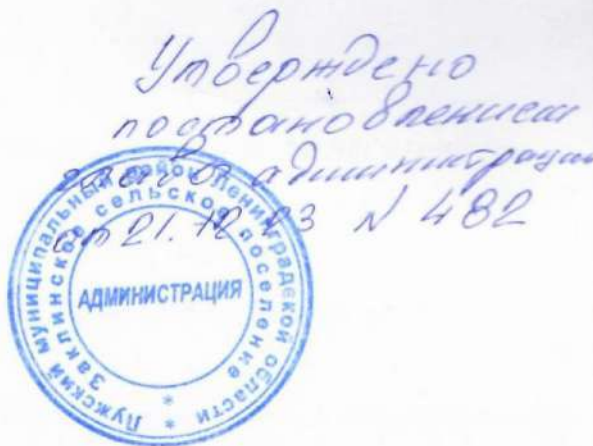 Утверждено
постановлением
администрации
от 21.12.23 N 482
Лужский муниципальный район Ленинградской области
Заклинское сельское поселение
АДМИНИСТРАЦИЯ
* *